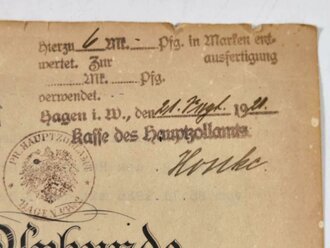 Hierzu 6 Mk. - Pfg. in Marken ent
wertet. Zur ausfertigung
Mk. Pfg.
verwendet.
Hagen i. W., den 21. Sept. 1921.
Kasse des Hauptzollamts
PR. HAUPTZOLLAMT
HAGEN